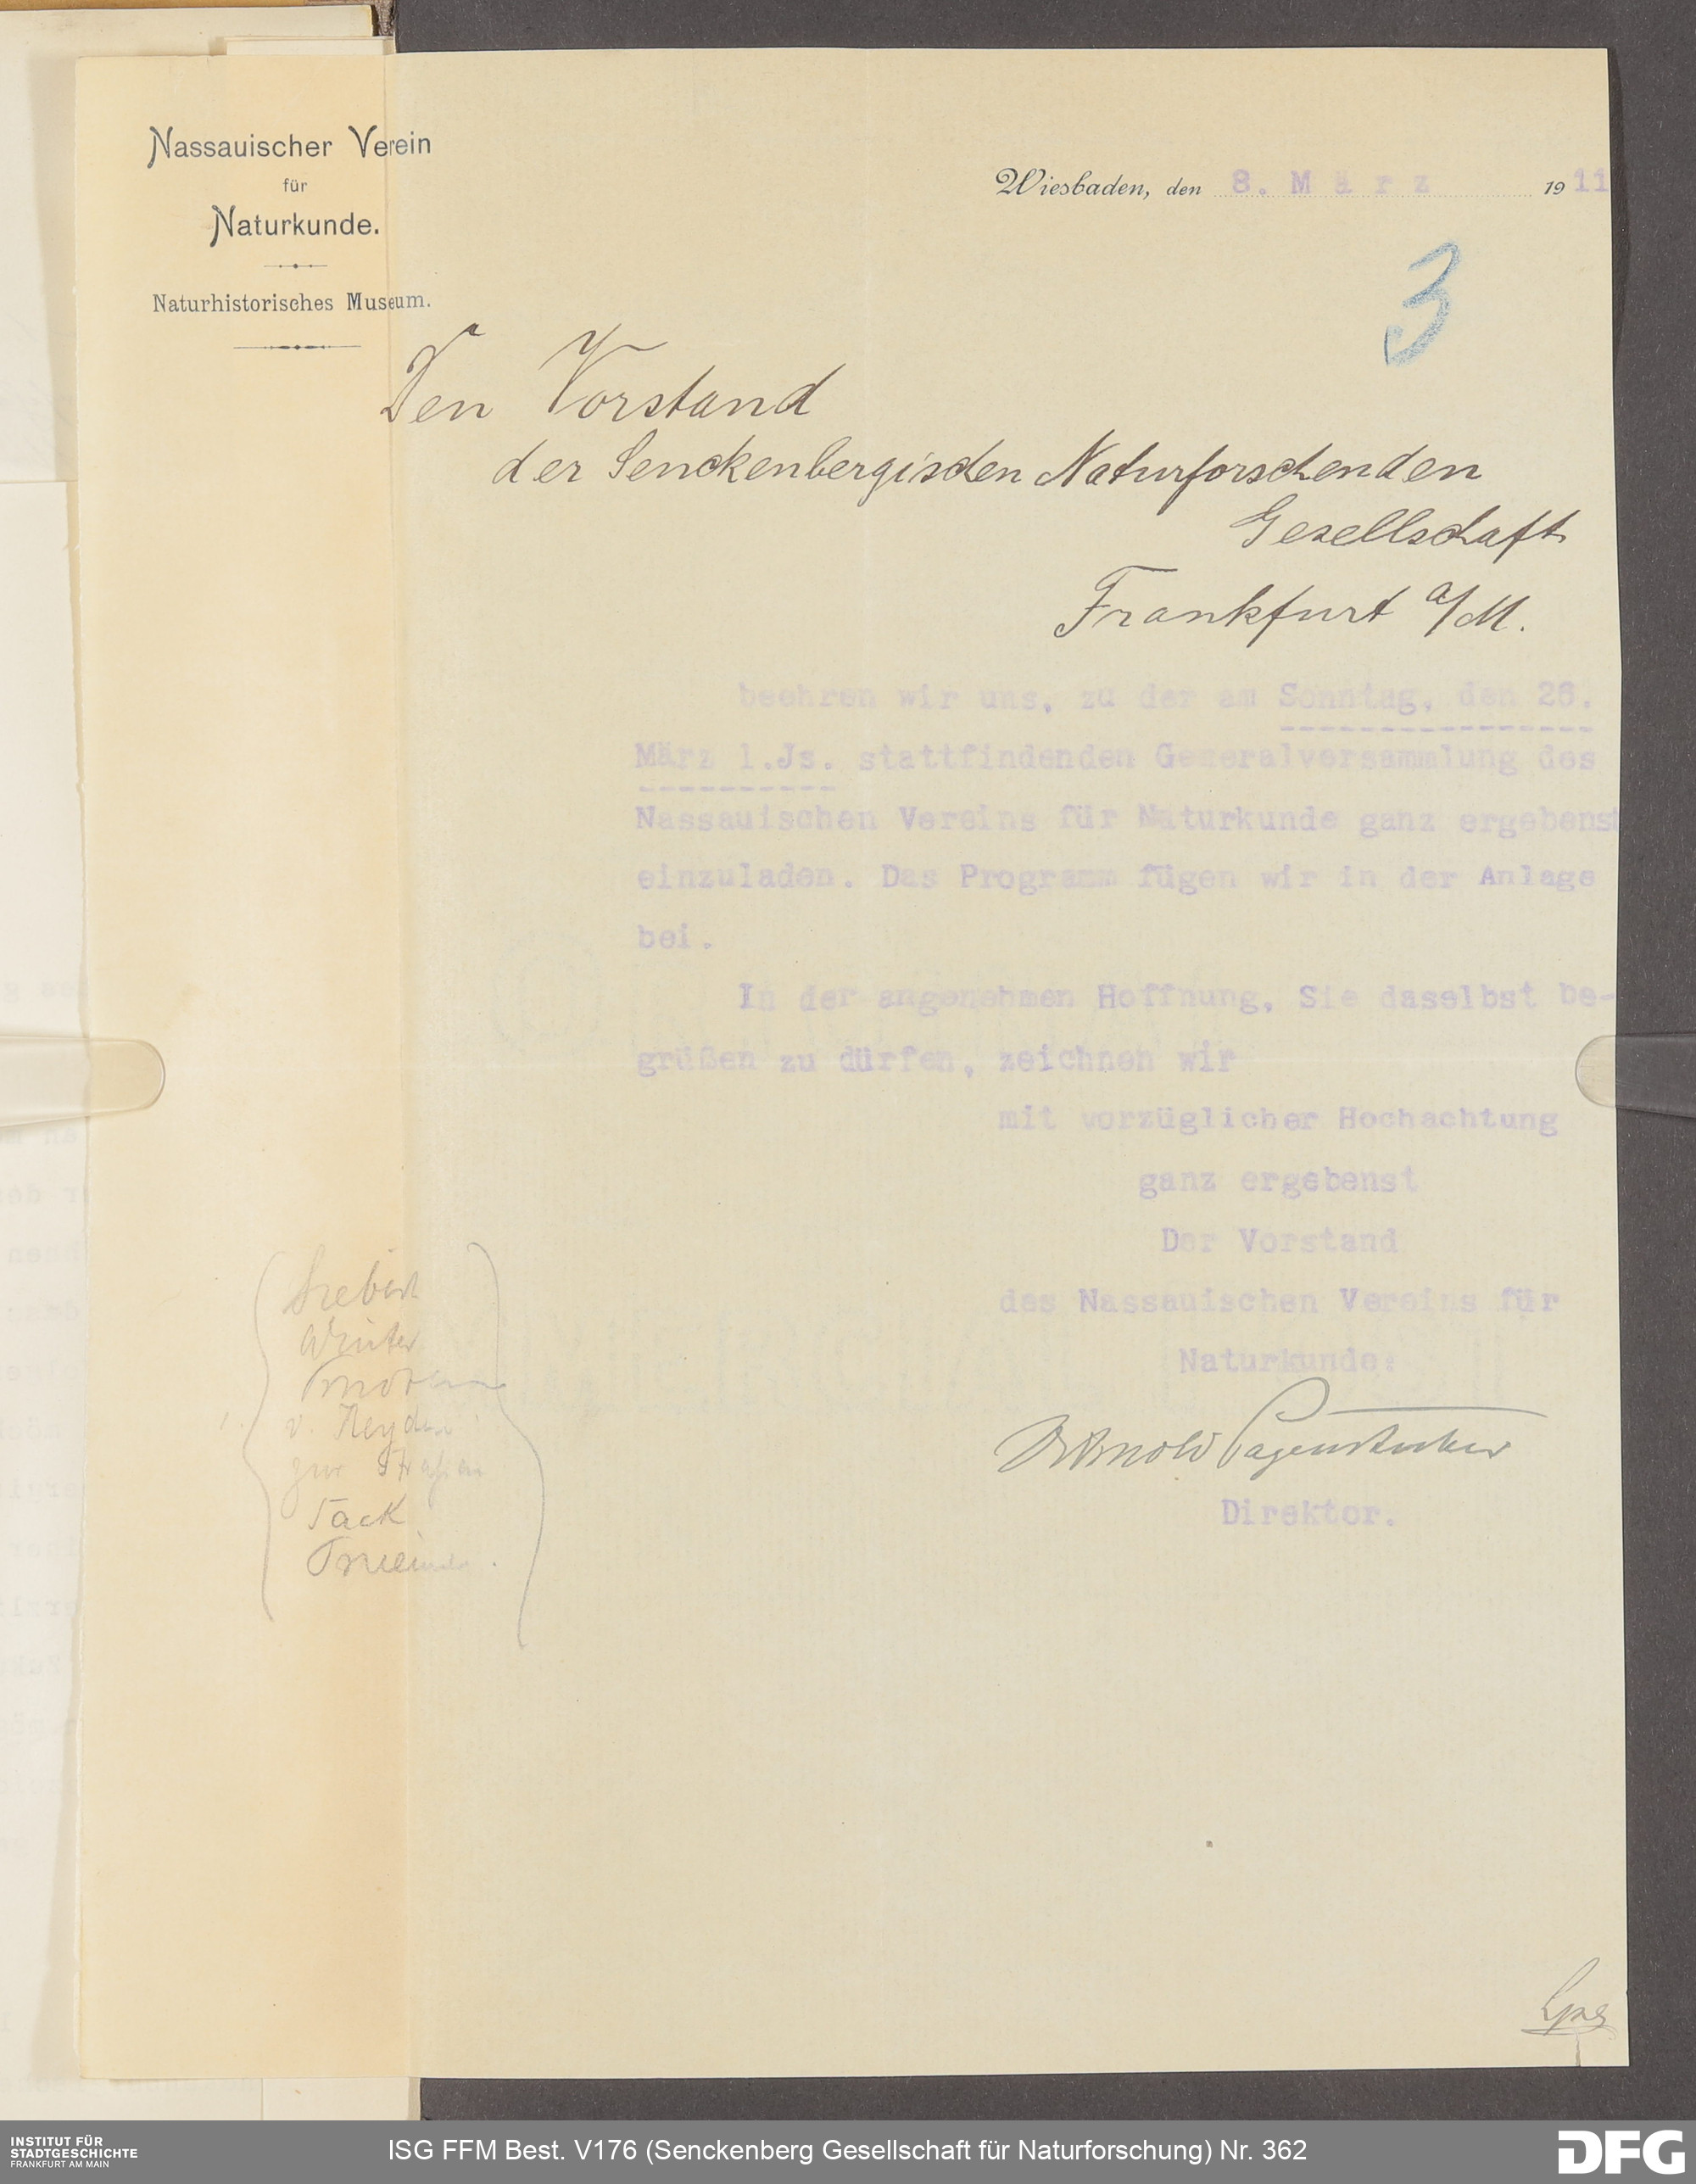 Nassauischer Verein
für
Naturkunde.
Naturhistorisches Museum.
Wiesbaden, den 8. März 1911
3
Den Vorstand
der Senckenbergischen Naturforschenden
Gesellschaft
Frankfurt a/M.
beehren wir uns, zu der am Sonntag, den 26.
März l.Js. stattfindenden Generalversammlung des
Nassauischen Vereins für Naturkunde ganz ergebenst
einzuladen. Das Programm fügen wir in der Anlage
bei.
In der angenehmen Hoffnung, Sie daselbst be-
grüßen zu dürfen, zeichnen wir
mit vorzüglicher Hochachtung
ganz ergebenst
Der Vorstand
des Nassauischen Vereins für
Naturkunde:
Dr Arnold Pagenstecher
Direktor.
Winter
v. Heyden
zur Strassen
Sack
INSTITUT FÜR
STADTGESCHICHTE
FRANKFURT AM MAIN
ISG FFM Best. V176 (Senckenberg Gesellschaft für Naturforschung) Nr. 362
DFG